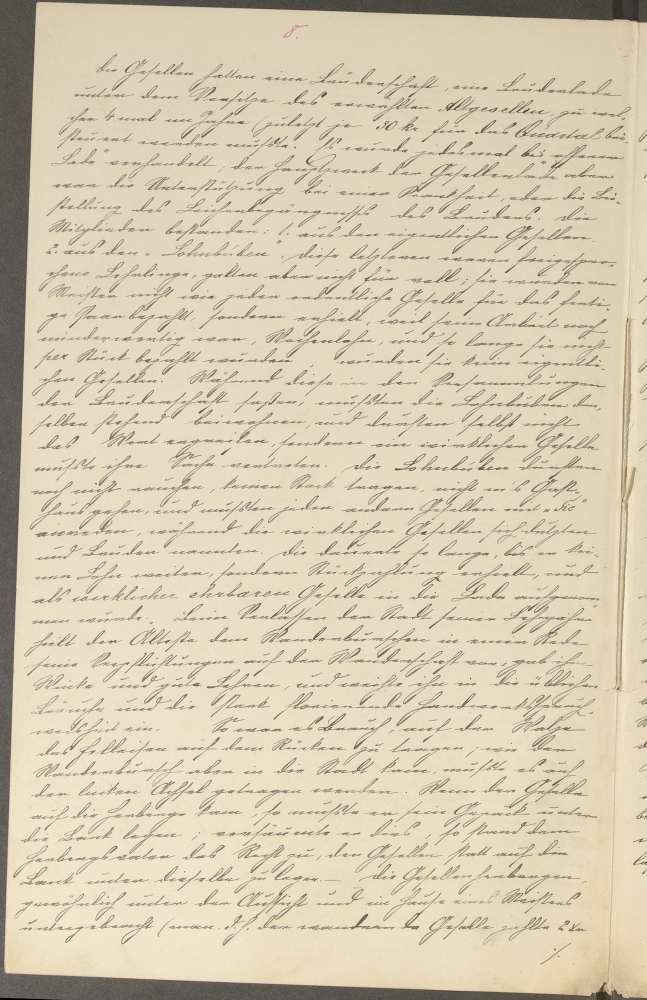 8.
die Gesellen hatten eine Bruderschaft, eine Bruderlade
unter dem Vorsitze des erwählten Altgesellen, zu wel-
cher 4 mal im Jahre (zuletzt je 30 kr für das Quartal bei
steuert werden mußte. Es wurde jedesmal bei offener
Lade verhandelt, der Hauptzweck der Gesellenlade aber
war die Unterstützung bei einer Krankheit, oder die Bei-
stellung des Leichenbegängnisses des Bruders. Die
Mitglieder bestanden: 1. aus den eigentlichen Gesellen
2. aus den "Lohnbuben", diese letzteren waren freigespro-
chene Lehrlinge, galten aber nicht für voll; sie wurden vom
Meister nicht wie jeder ordentliche Geselle für das ferti-
ge Paar bezahlt, sondern erhielt, weil seine Arbeit noch
minderwertig war, Wochenlohn, und so lange sie nicht
per Stück bezahlt wurden wurden sie keine eigentli-
chen Gesellen. Während diese in den Versammlungen
der Bruderschaft saßen, mußten die Lohnbuben den-
selben stehend beiwohnen, und durften selbst nicht
das Wort ergreifen, sondern ein wirklicher Geselle
mußte ihre Sache vertreten. Die Lohnbuben durften
noch nicht rauchen, keinen Stock tragen, nicht in's Gast-
haus gehen, und mußten jeden andern Gesellen mit "Sie"
anreden, während die wirklichen Gesellen sich duzten
und Bruder nannten. Die dauerte so lange, bis er kei-
nen Lohn weiter, sondern Stückzahlung erhielt, und
als wirklicher ehrbarer Geselle in die Lade aufgenom-
men wurde. Beim Verlassen der Stadt seiner Lehrjahre
hielt der Älteste dem Wanderburschen in einer Rede
seine Verpflichtungen auf der Wanderschaft vor, gab ihm
Winke und gute Lehren, und weihte ihn in die üblichen
Bräuche und die stark florierende Handwerksspruch-
weisheit ein. So war es Brauch, auf der Walze
das Felleisen auf dem Rücken zu tragen; wie der
Wanderbursch aber in die Stadt kam, mußte es auf
der linken Achsel getragen werden. Wenn der Geselle
auf die Herberge kam, so mußte er sein Gepäck unter
die Bank legen; versäumte er dies, so stand dem
Herbergsvater das Recht zu, den Gesellen statt auf die
Bank unter dieselbe zu legen. — Die Gesellenherbergen
gewöhnlich unter der Aufsicht und im Hause eines Meisters
untergebracht (man. d. h. der wandernde Geselle zahlte 2 kr
./.